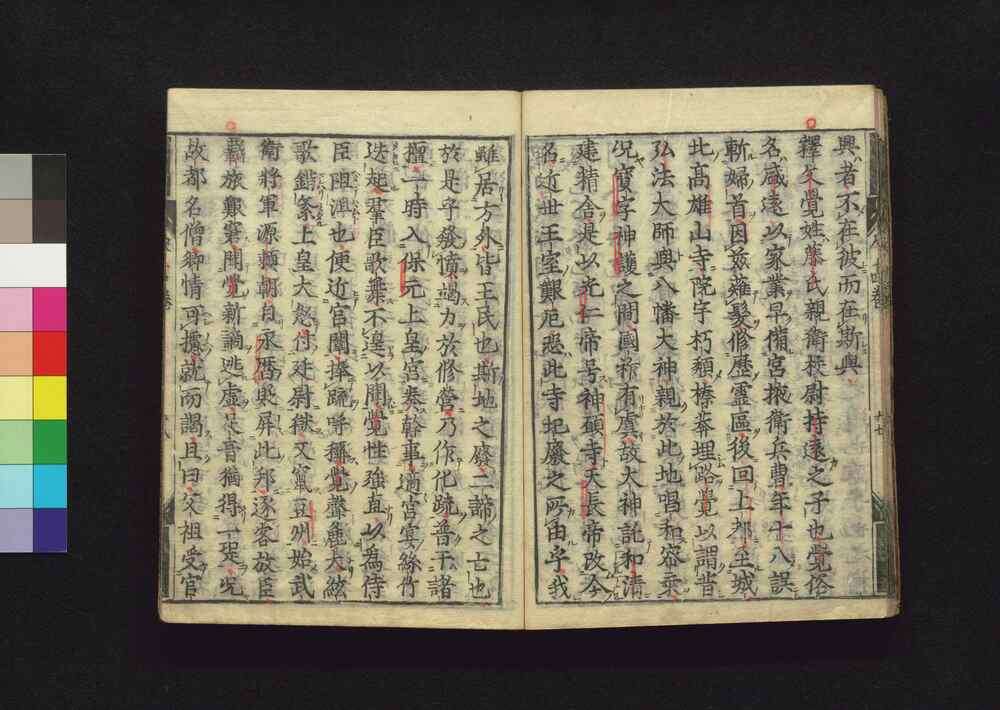 興者不在彼而在斯興
釋文覺姓藤氏親衛校尉持遠之子也覺俗
名盛遠以家業早備宮掖衛兵曹年十八誤
斬婦首因玆薙髮修歷靈區後回上都主城
北高雄山寺院宇朽頽榛莽埋路覺以謂昔
弘法大師與八幡大神親於此地唱和密乘
況寶字神護之間國祚有虞故大神託和清
建精舍是以光仁帝号神願寺天長帝改今
名近世王室艱厄悉此寺圮廢之所由乎我
雖居方外皆王民也斯地之廢二諦之士也
於是乎發憤竭力於修營乃作化疏普干諸
檀一時入保元上皇宮奏幹事適宮宴絲竹
迭起羣臣歌舞不遑以聞覺性強直以為侍
臣阻洇也便近宮闥捧疏呼稱覺聲麁大絃
歌錯紊上皇大怒付廷尉獄又竄豆州始武
衛將軍源賴朝自永曆貶屏此邦逐客放臣
羈旅艱窘聞覺新謫逃虛足音猶得一跫況
故都名僧鄉情可攄就而謁且曰父祖受官